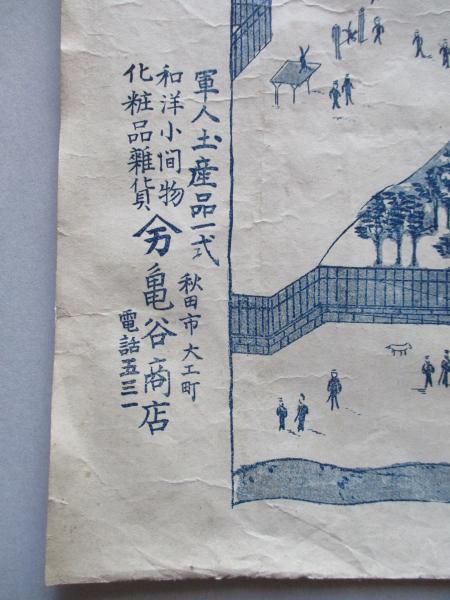 軍人土産品一式
和洋小间物
化粧品雑貨
秋田市大工町
亀谷商店
電話五三一